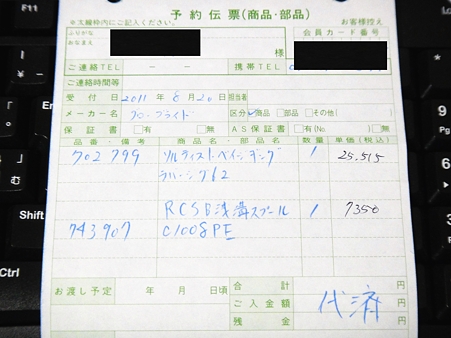 F11
予約伝票（商品・部品）
※太線枠内にご記入ください。
お客様控え
ふりがな
おなまえ
様
会員カード番号
ご連絡TEL － －
携帯TEL
ご連絡時間等
受付日 2011年 8月 20日 担当者
メーカー名 プロ・ブライド
区分 ✓商品 □部品 □その他（ ）
保証書 □有 □無
AS保証書 □有(No. ) □無
品番・備考 商品名・部品名 数量 単価（税込）
702799 ソルティスト・ベイジギング 1 25.515
RCSB浅溝スプール 1 7350
743907 C1008PE
お渡し予定 年 月 日頃
合計 円
ご入金額 代済 円
残金 円
Shift
Ctrl
Alt